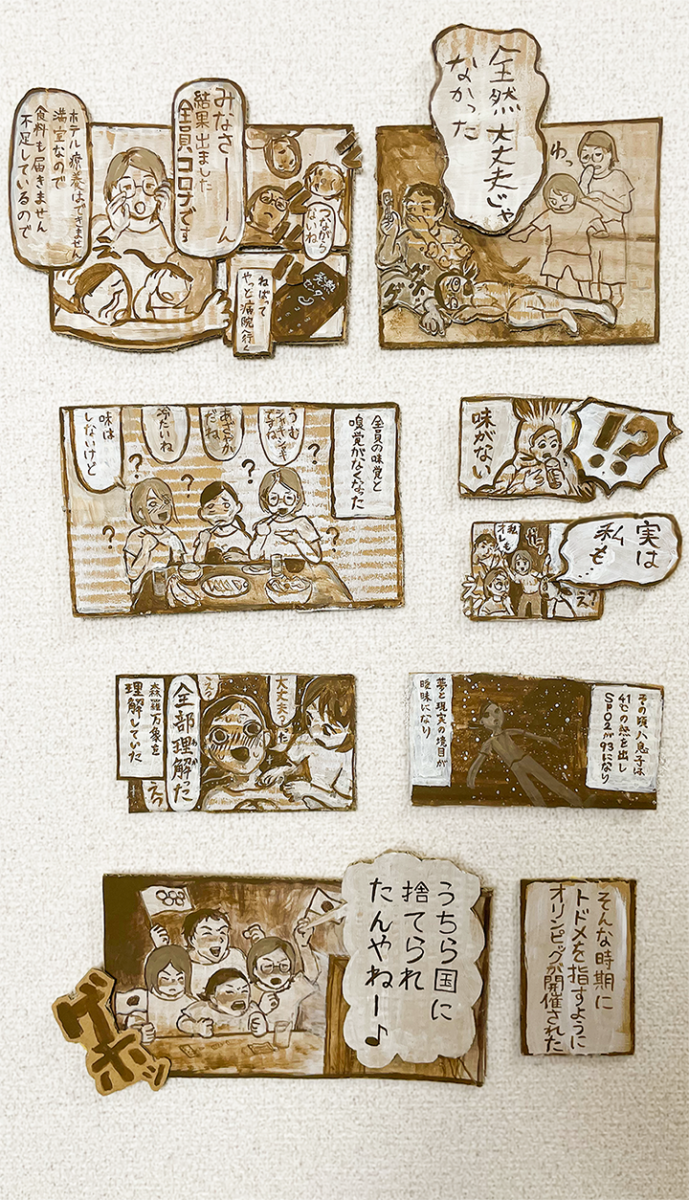 全然大丈夫じゃ
なかった
わっ
ゲホ
ゲホ
つながら
ないね
ねばって
やっと病院へ行く
みなさーーーん
結果出ました
全員コロナです
ホテル療養はできません
満室なので
食料も届きません
不足しているので
!?
味がない
実は
私も…
私も
オレも
ガーッ
え?
え?
全員の味覚と
嗅覚がなくなった
?
?
?
?
?
うむ
シャキシャキ
ですね
あざやか
だね
冷たいね
味は
しないけど
その頃八息子は
41℃の熱を出し
SPO2が93になり
夢と現実の境目が
曖昧になり
大丈夫?
え?
全部理解った
わか
森羅万象を
理解していた
えっ
そんな時期に
トドメを指すように
オリンピックが開催された
うちら国に
捨てられ
たんやねー♪
ゲホッ